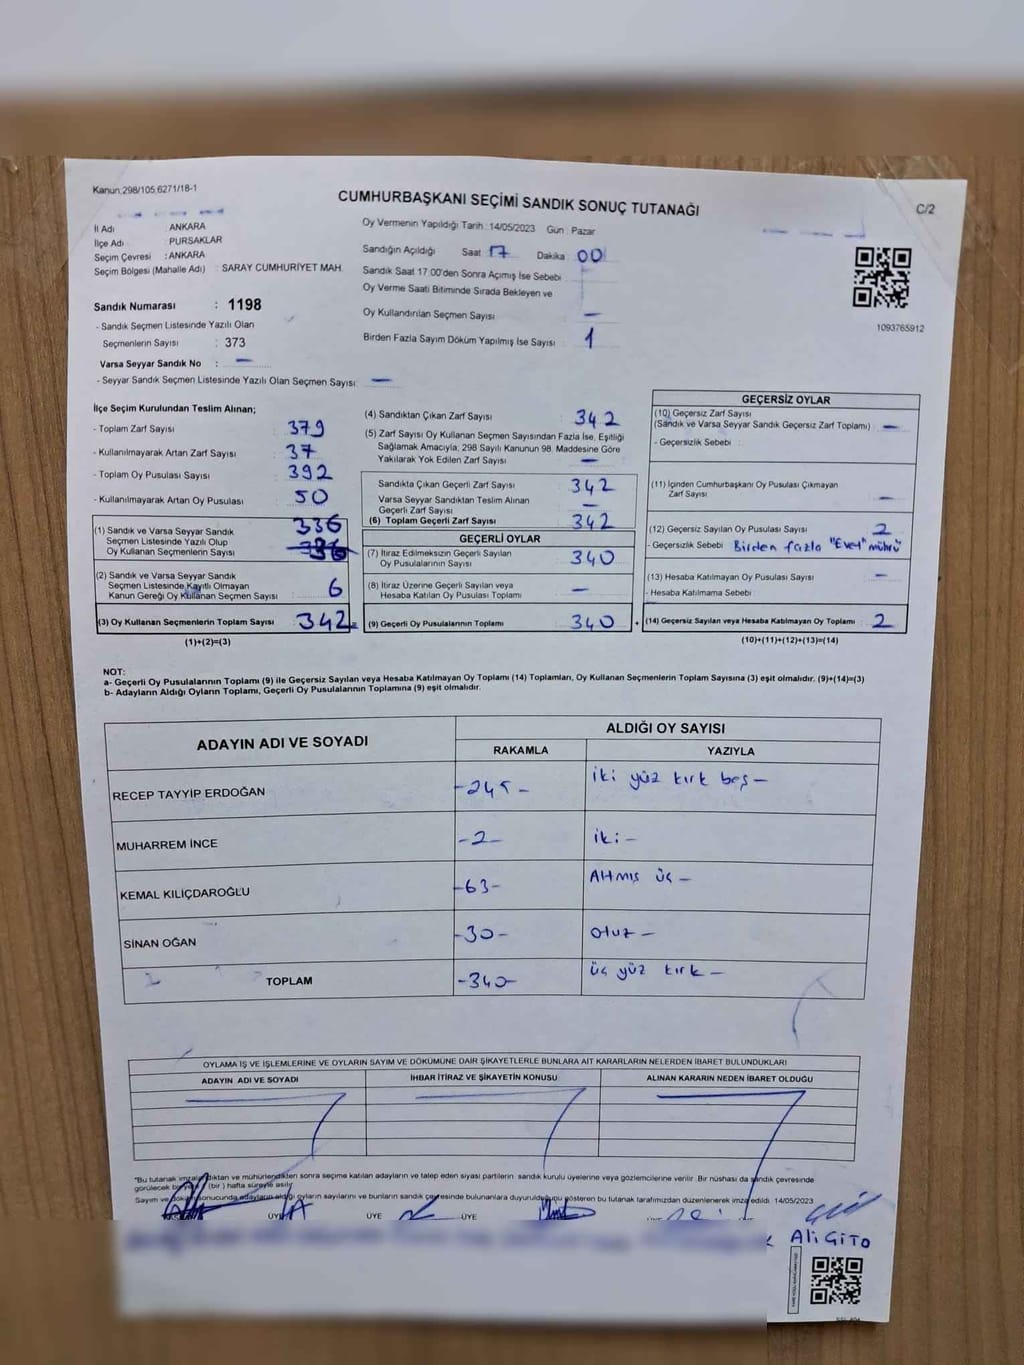 Kanun:298/105,6271/18-1
CUMHURBAŞKANI SEÇİMİ SANDIK SONUÇ TUTANAĞI
C/2
İl Adı : ANKARA
İlçe Adı : PURSAKLAR
Seçim Çevresi : ANKARA
Seçim Bölgesi (Mahalle Adı) : SARAY CUMHURİYET MAH.
Oy Vermenin Yapıldığı Tarih : 14/05/2023 Gün : Pazar
Sandığın Açıldığı Saat 17 Dakika 00
Sandık Saat 17:00'den Sonra Açımış İse Sebebi
Oy Verme Saati Bitiminde Sırada Bekleyen ve
Oy Kullandırılan Seçmen Sayısı : —
Birden Fazla Sayım Döküm Yapılmış İse Sayısı : 1
1093765912
Sandık Numarası : 1198
- Sandık Seçmen Listesinde Yazılı Olan
Seçmenlerin Sayısı : 373
Varsa Seyyar Sandık No : —
- Seyyar Sandık Seçmen Listesinde Yazılı Olan Seçmen Sayısı: —
İlçe Seçim Kurulundan Teslim Alınan;
- Toplam Zarf Sayısı : 379
- Kullanılmayarak Artan Zarf Sayısı : 37
- Toplam Oy Pusulası Sayısı : 392
- Kullanılmayarak Artan Oy Pusulası : 50
(1) Sandık ve Varsa Seyyar Sandık 336
Seçmen Listesinde Yazılı Olup
Oy Kullanan Seçmenlerin Sayısı
(2) Sandık ve Varsa Seyyar Sandık
Seçmen Listesinde Kayıtlı Olmayan
Kanun Gereği Oy Kullanan Seçmen Sayısı : 6
(3) Oy Kullanan Seçmenlerin Toplam Sayısı : 342
(1)+(2)=(3)
(4) Sandıktan Çıkan Zarf Sayısı : 342
(5) Zarf Sayısı Oy Kullanan Seçmen Sayısından Fazla İse, Eşitliği
Sağlamak Amacıyla; 298 Sayılı Kanunun 98. Maddesine Göre
Yakılarak Yok Edilen Zarf Sayısı : —
Sandıkta Çıkan Geçerli Zarf Sayısı : 342
Varsa Seyyar Sandıktan Teslim Alınan
Geçerli Zarf Sayısı : —
(6) Toplam Geçerli Zarf Sayısı : 342
GEÇERLİ OYLAR
(7) İtiraz Edilmeksizin Geçerli Sayılan
Oy Pusulalarının Sayısı : 340
(8) İtiraz Üzerine Geçerli Sayılan veya
Hesaba Katılan Oy Pusulası Toplamı : —
(9) Geçerli Oy Pusulalarının Toplamı : 340
GEÇERSİZ OYLAR
(10) Geçersiz Zarf Sayısı
(Sandık ve Varsa Seyyar Sandık Geçersiz Zarf Toplamı) : —
- Geçersizlik Sebebi :
(11) İçinden Cumhurbaşkanı Oy Pusulası Çıkmayan
Zarf Sayısı : —
(12) Geçersiz Sayılan Oy Pusulası Sayısı : 2
- Geçersizlik Sebebi Birden fazla "Evet" mührü
(13) Hesaba Katılmayan Oy Pusulası Sayısı : —
- Hesaba Katılmama Sebebi
(14) Geçersiz Sayılan veya Hesaba Katılmayan Oy Toplamı : 2
(10)+(11)+(12)+(13)=(14)
NOT:
a- Geçerli Oy Pusulalarının Toplamı (9) ile Geçersiz Sayılan veya Hesaba Katılmayan Oy Toplamı (14) Toplamları, Oy Kullanan Seçmenlerin Toplam Sayısına (3) eşit olmalıdır. (9)+(14)=(3)
b- Adayların Aldığı Oyların Toplamı, Geçerli Oy Pusulalarının Toplamına (9) eşit olmalıdır.
ADAYIN ADI VE SOYADI
ALDIĞI OY SAYISI
RAKAMLA YAZIYLA
RECEP TAYYİP ERDOĞAN -245- iki yüz kırk beş —
MUHARREM İNCE -2- iki —
KEMAL KILIÇDAROĞLU -63- Altmış üç —
SİNAN OĞAN -30- otuz —
TOPLAM -340- üç yüz kırk —
OYLAMA İŞ VE İŞLEMLERİNE VE OYLARIN SAYIM VE DÖKÜMÜNE DAİR ŞİKAYETLERLE BUNLARA AİT KARARLARIN NELERDEN İBARET BULUNDUKLARI
ADAYIN ADI VE SOYADI İHBAR İTİRAZ VE ŞİKAYETİN KONUSU ALINAN KARARIN NEDEN İBARET OLDUĞU
"Bu tutanak imzalandıktan ve mühürlendikten sonra seçime katılan adayların ve talep eden siyasi partilerin sandık kurulu üyelerine veya gözlemcilerine verilir. Bir nüshası da sandık çevresinde
görülecek bir yere (bir) hafta süreyle asılır.
Sayım ve döküm sonucunda adayların aldığı oyların sayılarını ve bunların sandık çevresinde bulunanlara duyurulduğunu gösteren bu tutanak tarafımızdan düzenlenerek imza edildi. 14/05/2023
ÜYE ÜYE ÜYE
Ali GİTO